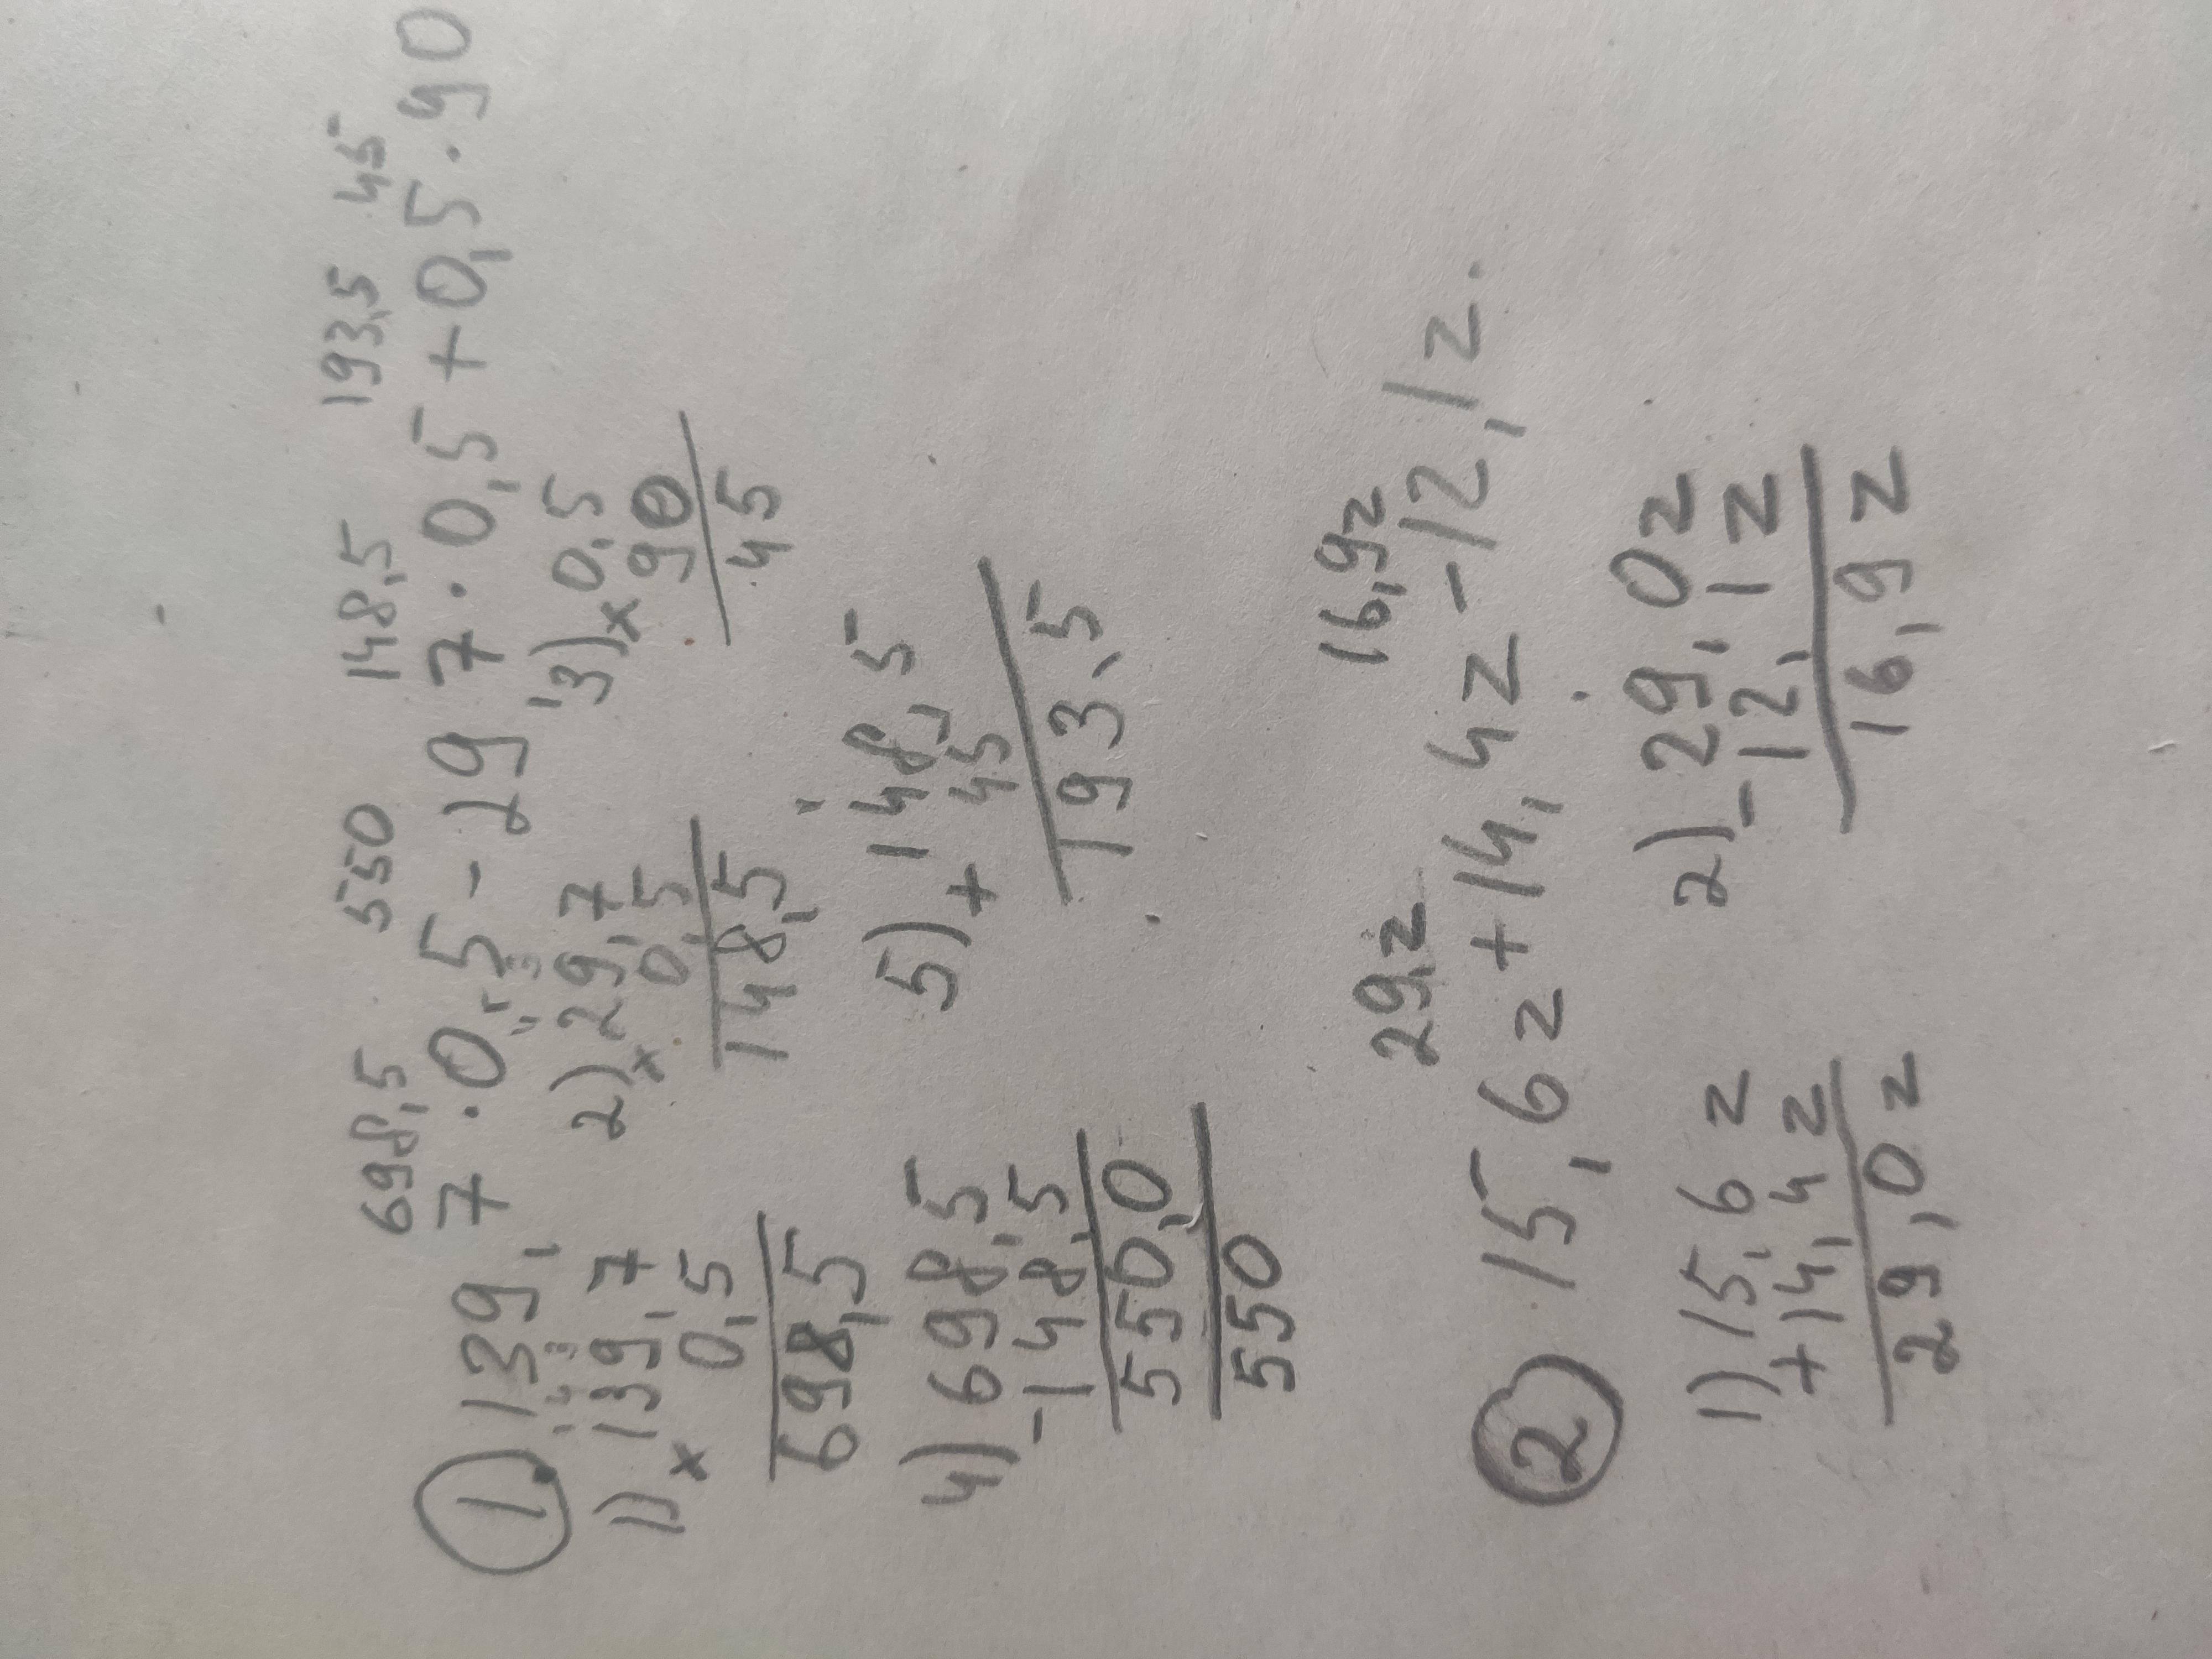 698,5 550 148,5 193,5 45
1. 139,7 · 0,5 - 29 7 · 0,5 + 0,5 · 90
1) 139,7 2) 29,7 3) 0,5
× 0,5 × 0,5 × 90
698,5 148,5 45
4) 698,5 5) 148,5
-148,5 + 45
550,0 193,5
550
29z 16,9z
2 15,6z + 14,4z - 12,1z.
1) 15,6z 2) 29,0z
+14,4z -12,1z
29,0z 16,9z